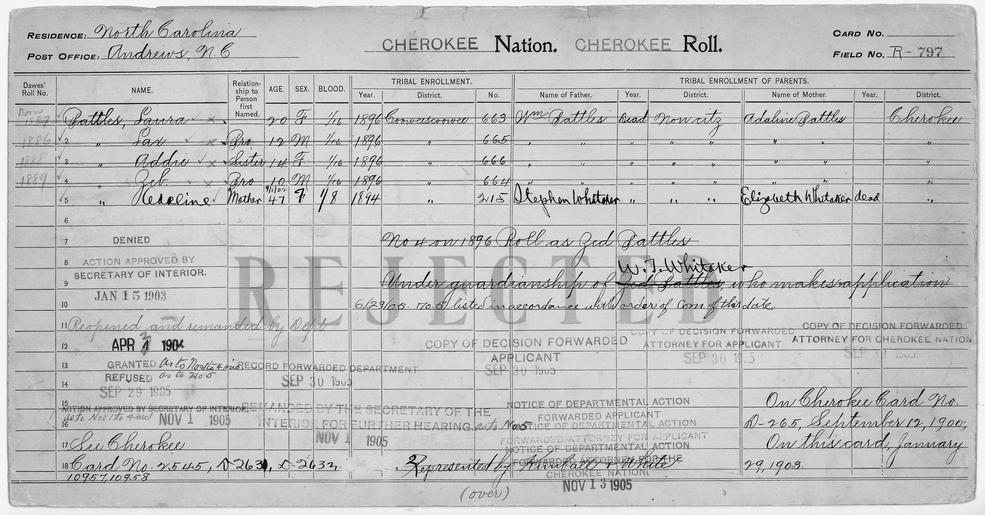 RESIDENCE: North Carolina
POST OFFICE: Andrews, N.C
CHEROKEE Nation. CHEROKEE Roll.
CARD NO.
FIELD NO. R-797
Dawes' Roll No. NAME. Relationship to Person first Named. AGE. SEX. BLOOD. TRIBAL ENROLLMENT. Year. District. No. TRIBAL ENROLLMENT OF PARENTS. Name of Father. Year. District. Name of Mother. Year. District.
1887 Battles, Laura 20 F 1/16 1896 Cooweescoowee 663 Wm Battles Dead Noncitz Adaline Battles Cherokee
1886 2 " Lax Bro 12 M 1/16 1896 " 665 " " " " " " "
1888 3 " Addie Sister 14 F 1/16 1896 " 666 " " " " " " "
1889 4 " Zeb Bro 10 M 1/16 1896 " 664 " " " " " " "
5 " Mother 47 F 1/8 1894 " 215 Stephen Whitaker " " " Elizabeth Whitaker dead "
6
7 No 4 on 1896 Roll as Zed Battles
DENIED
8 ACTION APPROVED BY
SECRETARY OF INTERIOR.
W.T. Whitaker
9 Under guardianship of Zed Battles, who makes application
JAN 15 1903
REJECTED
10 6/29/05 No. 5 listed in accordance with order of Com of this date
11 Reopened and remanded by Dept
12 APR 4 1904
COPY OF DECISION FORWARDED
APPLICANT
SEP 30 1905
COPY OF DECISION FORWARDED
ATTORNEY FOR APPLICANT
SEP 30 1905
COPY OF DECISION FORWARDED
ATTORNEY FOR CHEROKEE NATION
SEP 30 1905
13 GRANTED as to Nos 1 to 4 incl
REFUSED as to No. 5
14 SEP 29 1905
RECORD FORWARDED DEPARTMENT
SEP 30 1905
15
ACTION APPROVED BY SECRETARY OF INTERIOR
16 as to Nos 1 to 4 incl NOV 1 1905
REMANDED BY THE SECRETARY OF THE
INTERIOR FOR FURTHER HEARING. as to No 5
NOV 1 1905
NOTICE OF DEPARTMENTAL ACTION
FORWARDED APPLICANT
NOTICE OF DEPARTMENTAL ACTION
FORWARDED ATTORNEY FOR APPLICANT
NOTICE OF DEPARTMENTAL ACTION
FORWARDED ATTORNEY FOR THE
CHEROKEE NATION
NOV 13 1905
On Cherokee Card No.
D-265, September 12, 1900,
On this card, January
29, 1903.
17 See Cherokee
18 Card No. 2545, D-2631, D-2632
10957, 10958
Represented by & White
(over)